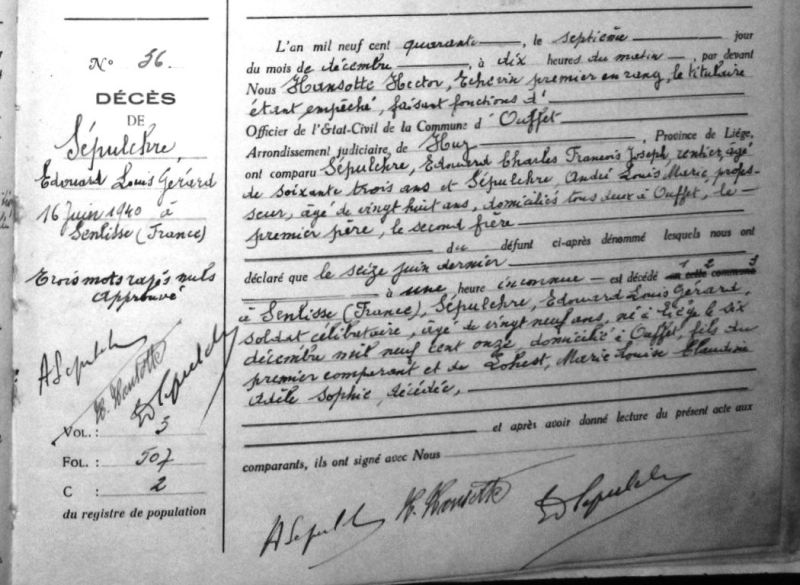 N° 56.
DÉCÈS
DE
Sépulchre,
Edouard Louis Gérard
16 Juin 1940 à
Senlisse (France)
Trois mots rayés nuls
Approuvé
ASepulchre
H. Hansotte
EdSepulchre
VOL. : 5
FOL. : 507
C : 2
du registre de population
L'an mil neuf cent quarante, le septième jour
du mois de décembre, à dix heures du matin, par devant
Nous Hansotte Hector, Echevin premier en rang, le titulaire
étant empêché, faisant fonctions d'
Officier de l'État-Civil de la Commune d'Ouffet
Arrondissement judiciaire de Huy, Province de Liége,
ont comparu Sépulchre, Edouard Charles François Joseph, rentier, âgé
de soixante trois ans et Sépulchre André Louis Marie, profes-
seur, âgé de vingt huit ans, domiciliés tous deux à Ouffet, le
premier père, le second frère
du défunt ci-après dénommé lesquels nous ont
déclaré que le seize juin dernier
à une heure inconnue — est décédé en cette commune 1 2 3
à Senlisse (France), Sépulchre, Edouard Louis Gérard,
soldat célibataire, âgé de vingt neuf ans, né à Liége le six
décembre mil neuf cent onze domicilié à Ouffet, fils du
premier comparant et de Lohest, Marie Louise Claudine
Adèle Sophie, décédée,
et après avoir donné lecture du présent acte aux
comparants, ils ont signé avec Nous
ASepulchre H. Hansotte EdSepulchre